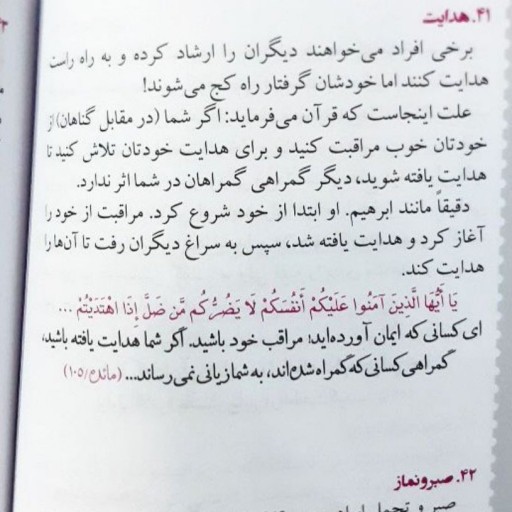 ۴۱. هدایت
برخی افراد می‌خواهند دیگران را ارشاد کرده و به راه راست
هدایت کنند اما خودشان گرفتار راه کج می‌شوند!
علت اینجاست که قرآن می‌فرماید: اگر شما (در مقابل گناهان) از
خودتان خوب مراقبت کنید و برای هدایت خودتان تلاش کنید تا
هدایت یافته شوید، دیگر گمراهی گمراهان در شما اثر ندارد.
دقیقاً مانند ابرهیم. او ابتدا از خود شروع کرد. مراقبت از خود را
آغاز کرد و هدایت یافته شد، سپس به سراغ دیگران رفت تا آن‌ها را
هدایت کند.
يَا أَيُّهَا الَّذِينَ آمَنُوا عَلَيْكُمْ أَنْفُسَكُمْ لَا يَضُرُّكُم مَّن ضَلَّ إِذَا اهْتَدَيْتُمْ ...
ای کسانی که ایمان آورده‌اید! مراقب خود باشید. اگر شما هدایت یافته باشید،
گمراهی کسانی که گمراه شده‌اند، به شما زیانی نمی‌رساند... (مائده/۱۰۵)
۴۲. صبر و نماز
صبر و تحمل